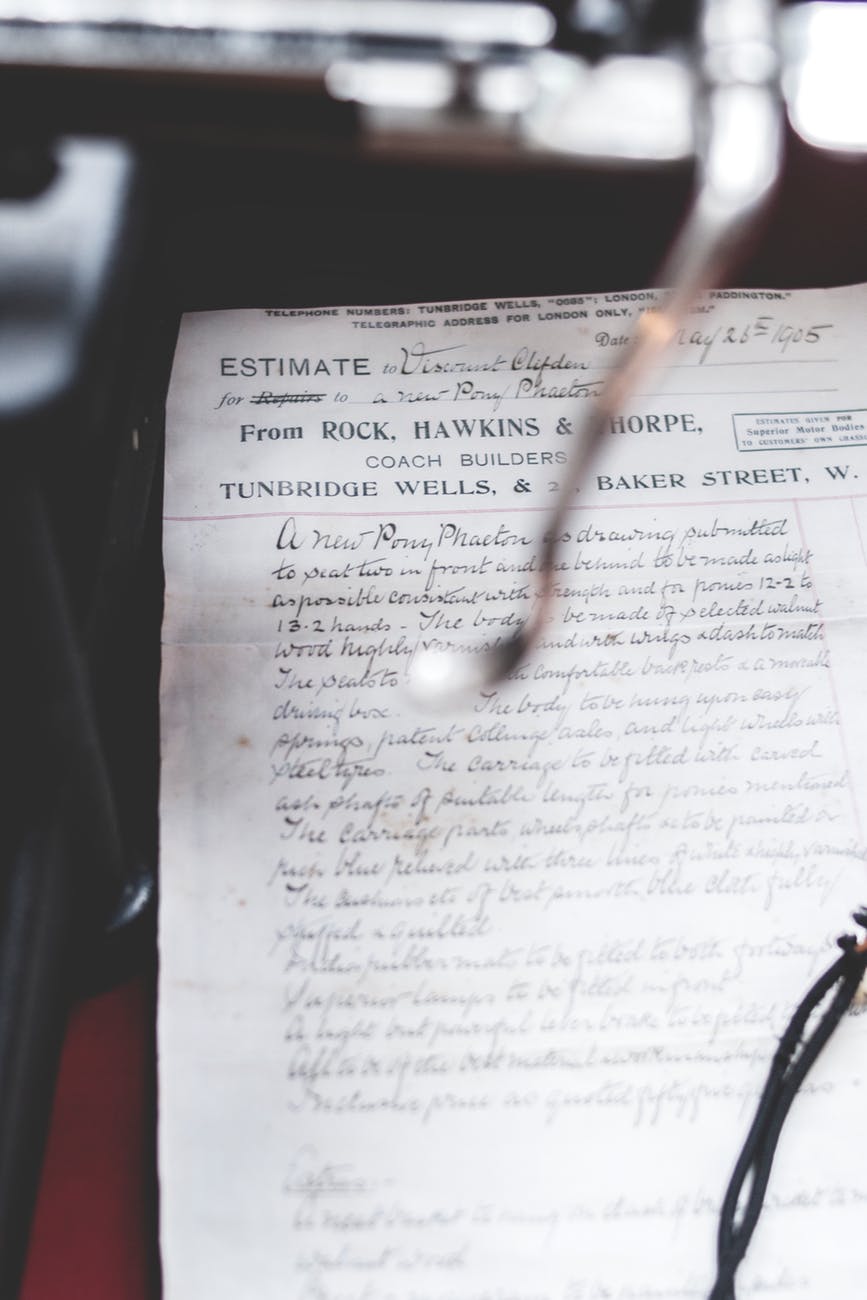 TELEPHONE NUMBERS: TUNBRIDGE WELLS, "0685"; LONDON, PADDINGTON."
TELEGRAPHIC ADDRESS FOR LONDON ONLY,
Date: May 26th 1905
ESTIMATE to Viscount Clifden
for Repairs to a new Pony Phaeton
From ROCK, HAWKINS & THORPE,
ESTIMATES GIVEN FOR
Superior Motor Bodies
TO CUSTOMERS' OWN CHASSIS
COACH BUILDERS
TUNBRIDGE WELLS, & 2 , BAKER STREET, W.
A new Pony Phaeton as drawing submitted
to seat two in front and one behind to be made as light
as possible consistent with strength and for ponies 12-2 to
13-2 hands - The body to be made of selected walnut
wood highly varnished and with wings & dash to match
The seats to with comfortable back rests & a movable
driving box. The body to be hung upon easy
springs, patent Collinge axles, and light wheels with
steel tyres. The carriage to be fitted with carved
ash shafts of suitable length for ponies mentioned
The carriage parts, wheels, shafts &c to be painted a
rich blue relieved with three lines of white & highly varnished
The cushions etc of best smooth blue cloth fully
stuffed & quilted
India rubber mats to be fitted to both footways
Superior lamps to be fitted in front
A light but powerful lever brake to be fitted
All to be of the best material & workmanship
Inclusive price as quoted fifty five
Extras
A neat basket to hang on dash of
walnut wood